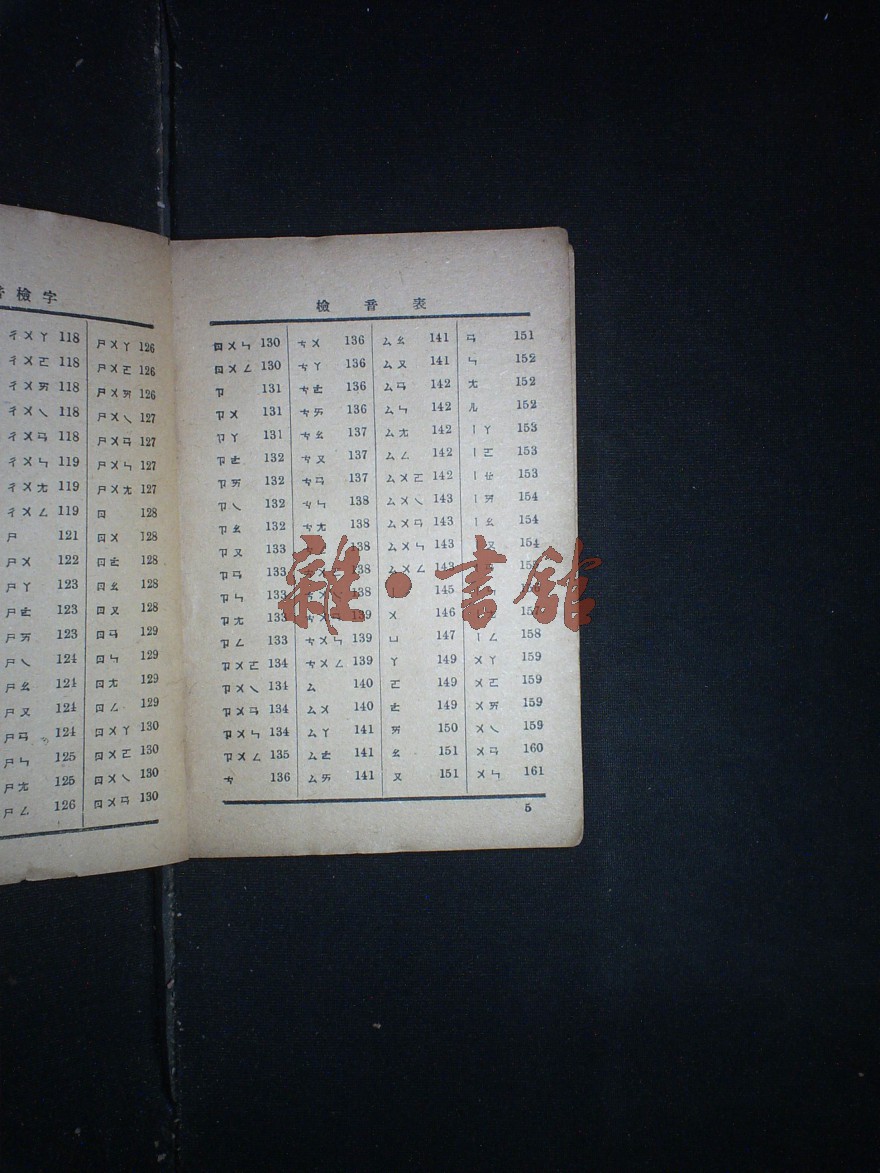 檢字
ㄔㄨㄚ 118
ㄔㄨㄛ 118
ㄔㄨㄞ 118
ㄔㄨㄟ 118
ㄔㄨㄢ 118
ㄔㄨㄣ 119
ㄔㄨㄤ 119
ㄔㄨㄥ 119
ㄕ 121
ㄕㄨ 122
ㄕㄚ 123
ㄕㄜ 123
ㄕㄞ 123
ㄕㄟ 124
ㄕㄠ 124
ㄕㄡ 124
ㄕㄢ 124
ㄕㄣ 125
ㄕㄤ 125
ㄕㄥ 126
ㄕㄨㄚ 126
ㄕㄨㄛ 126
ㄕㄨㄞ 126
ㄕㄨㄟ 127
ㄕㄨㄢ 127
ㄕㄨㄣ 127
ㄕㄨㄤ 127
ㄖ 128
ㄖㄨ 128
ㄖㄜ 128
ㄖㄠ 128
ㄖㄡ 128
ㄖㄢ 129
ㄖㄣ 129
ㄖㄤ 129
ㄖㄥ 129
ㄖㄨㄚ 130
ㄖㄨㄛ 130
ㄖㄨㄟ 130
ㄖㄨㄢ 130
檢音表
ㄖㄨㄣ 130
ㄖㄨㄥ 130
ㄗ 131
ㄗㄨ 131
ㄗㄚ 131
ㄗㄜ 132
ㄗㄞ 132
ㄗㄟ 132
ㄗㄠ 132
ㄗㄡ 133
ㄗㄢ 133
ㄗㄣ 133
ㄗㄤ 133
ㄗㄥ 133
ㄗㄨㄛ 134
ㄗㄨㄟ 134
ㄗㄨㄢ 134
ㄗㄨㄣ 134
ㄗㄨㄥ 135
ㄘ 136
ㄘㄨ 136
ㄘㄚ 136
ㄘㄜ 136
ㄘㄞ 136
ㄘㄠ 137
ㄘㄡ 137
ㄘㄢ 137
ㄘㄣ 138
ㄘㄤ 138
138
138
138
139
ㄘㄨㄣ 139
ㄘㄨㄥ 139
ㄙ 140
ㄙㄨ 140
ㄙㄚ 141
ㄙㄜ 141
ㄙㄞ 141
ㄙㄠ 141
ㄙㄡ 141
ㄙㄢ 142
ㄙㄣ 142
ㄙㄤ 142
ㄙㄥ 142
ㄙㄨㄛ 142
ㄙㄨㄟ 143
ㄙㄨㄢ 143
ㄙㄨㄣ 143
ㄙㄨㄥ 143
145
ㄨ 146
ㄩ 147
ㄚ 149
ㄛ 149
ㄜ 149
ㄞ 150
ㄠ 151
ㄡ 151
ㄢ 151
ㄣ 152
ㄤ 152
ㄦ 152
ㄧㄚ 153
ㄧㄛ 153
ㄧㄝ 153
ㄧㄞ 154
ㄧㄠ 154
ㄡ 154
156
157
ㄧㄥ 158
ㄨㄚ 159
ㄨㄛ 159
ㄨㄞ 159
ㄨㄟ 159
ㄨㄢ 160
ㄨㄣ 161
5
雜·書館